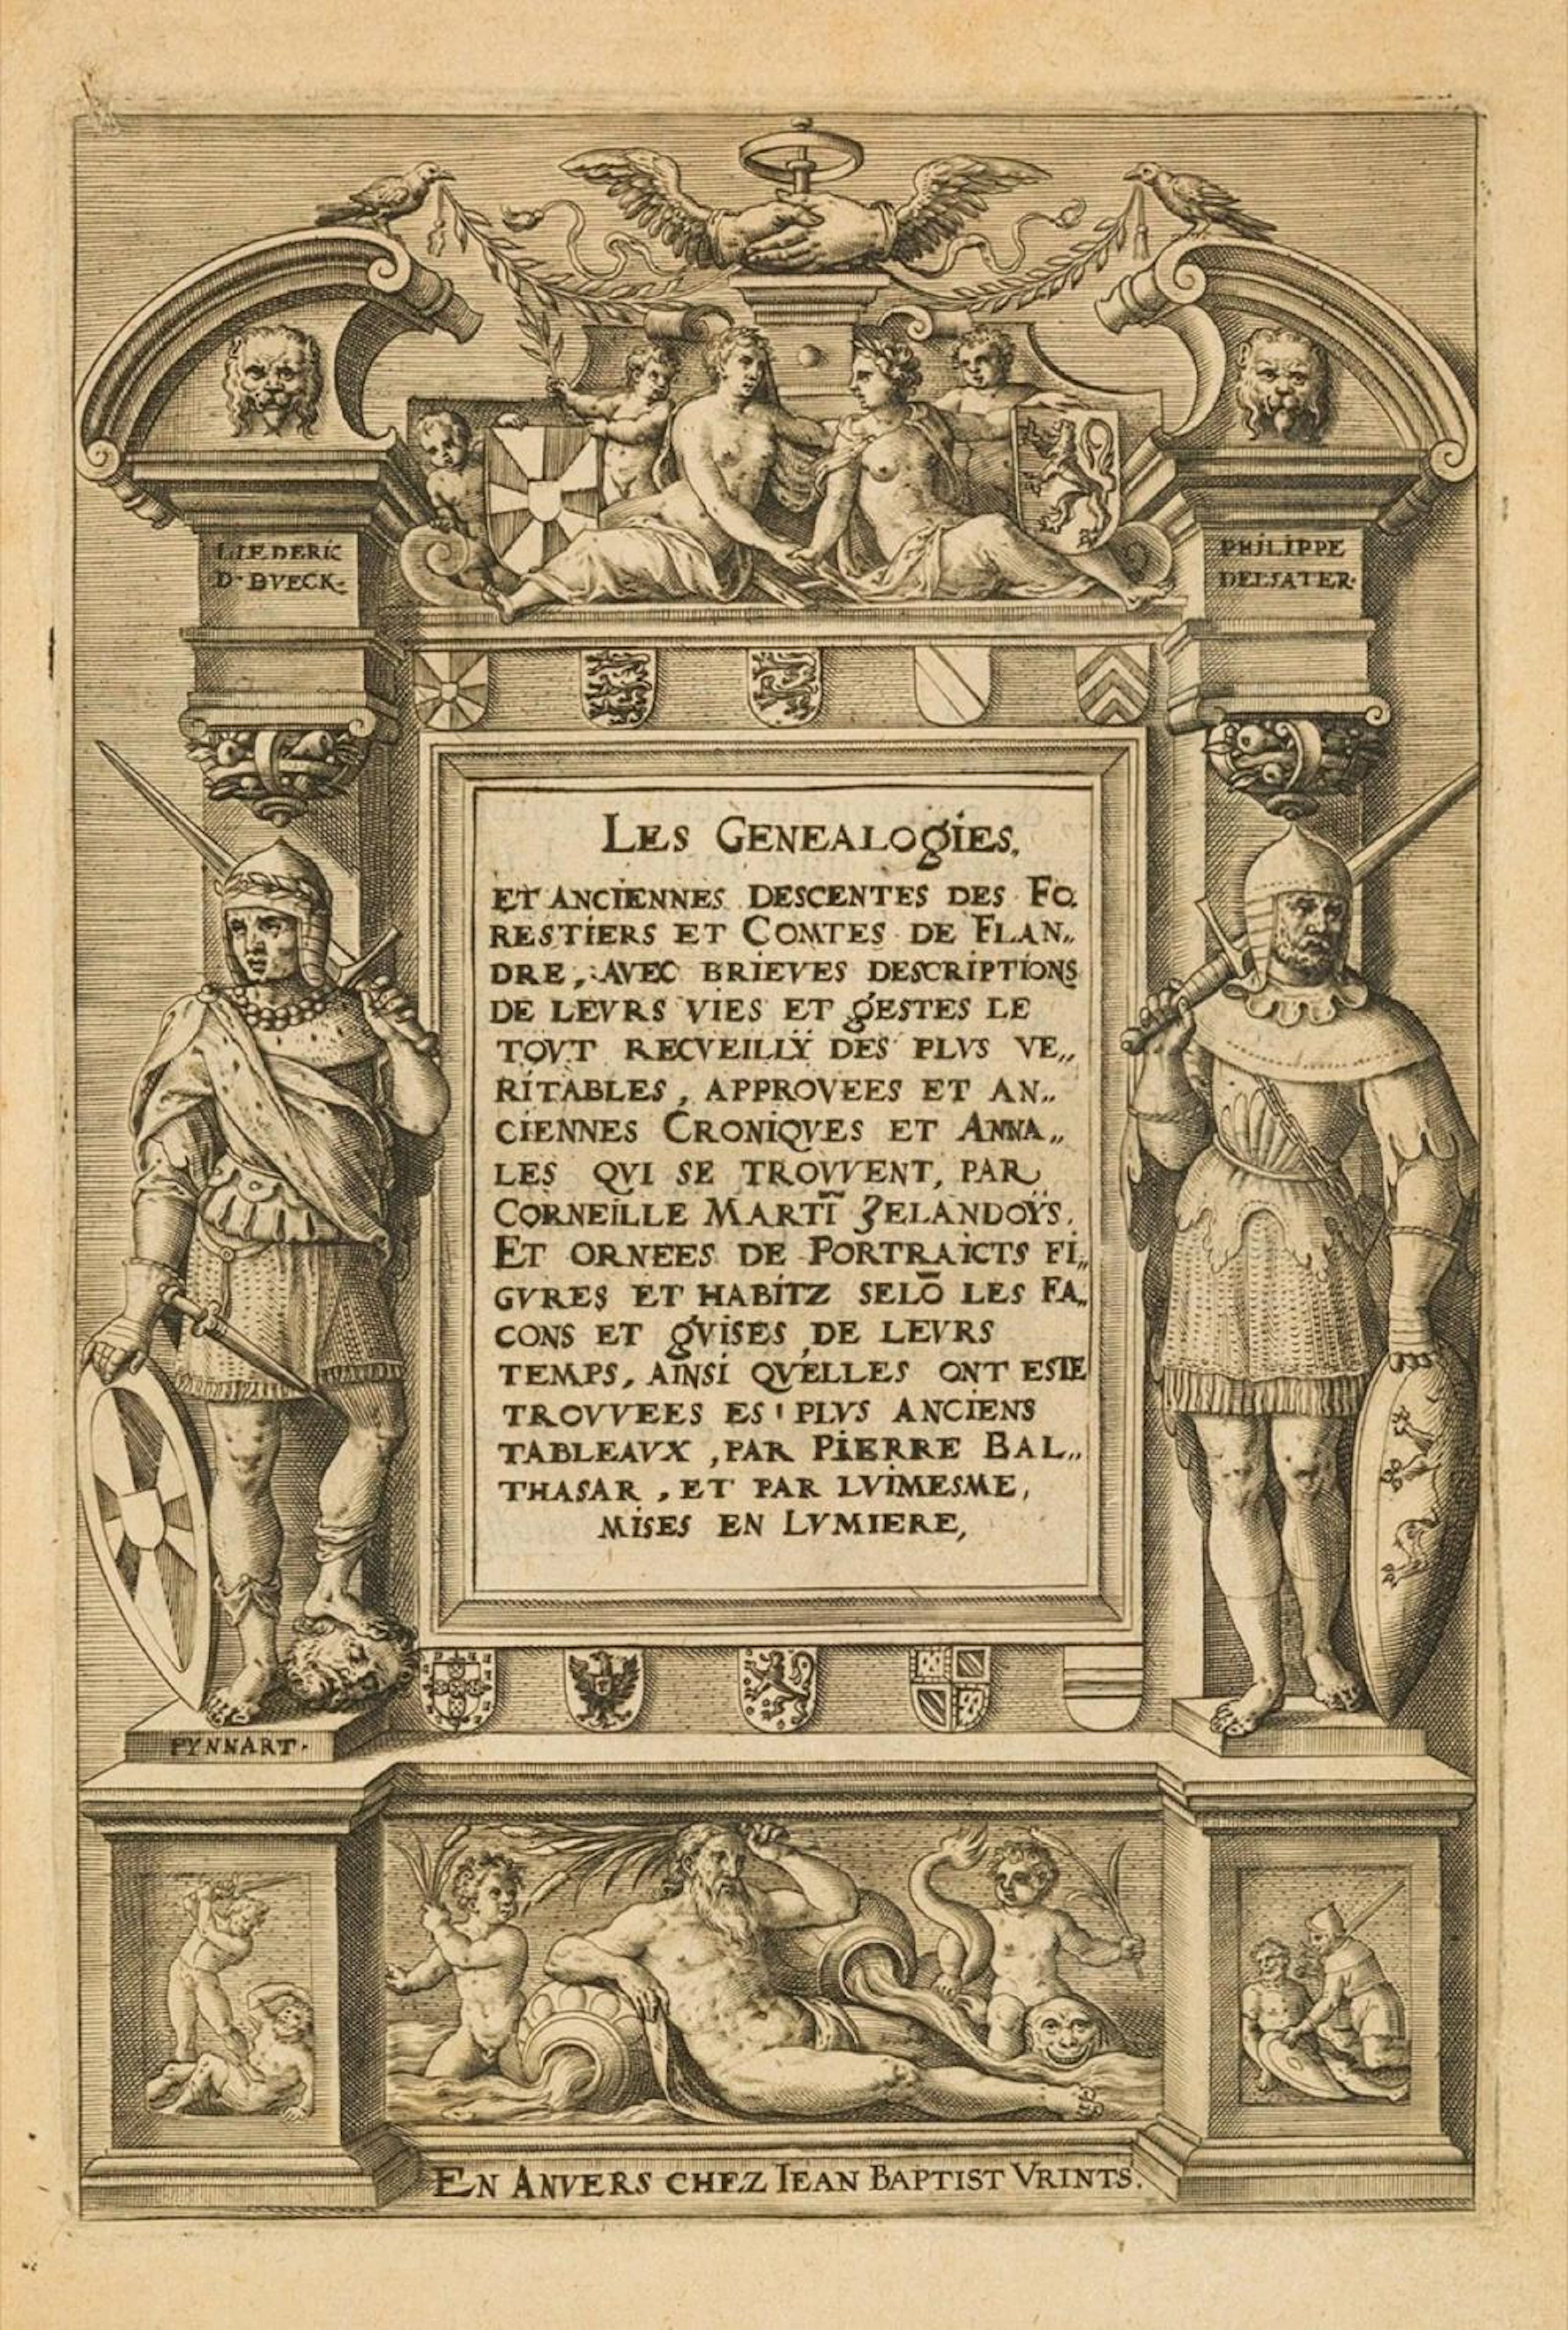 LIEDERIC
D·BVECK·
PHILIPPE
DELSATER·
LES GENEALOGIES,
ET ANCIENNES DESCENTES DES FO„
RESTIERS ET COMTES DE FLAN„
DRE, AVEC BRIEVES DESCRIPTIONS
DE LEVRS VIES ET GESTES LE
TOVT RECVEILLŸ DES PLVS VE„
RITABLES, APPROVEES ET AN„
CIENNES CRONIQVES ET ANNA„
LES QVI SE TROVVENT, PAR
CORNEILLE MARTĪ ZELANDOŸS.
ET ORNEES DE PORTRAICTS FI„
GVRES ET HABITZ SELŌ LES FA„
CONS ET GVISES DE LEVRS
TEMPS, AINSI QVELLES ONT ESTE
TROVVEES ES PLVS ANCIENS
TABLEAVX, PAR PIERRE BAL„
THASAR, ET PAR LVIMESME,
MISES EN LVMIERE,
FYNNART·
EN ANVERS CHEZ IEAN BAPTIST VRINTS.